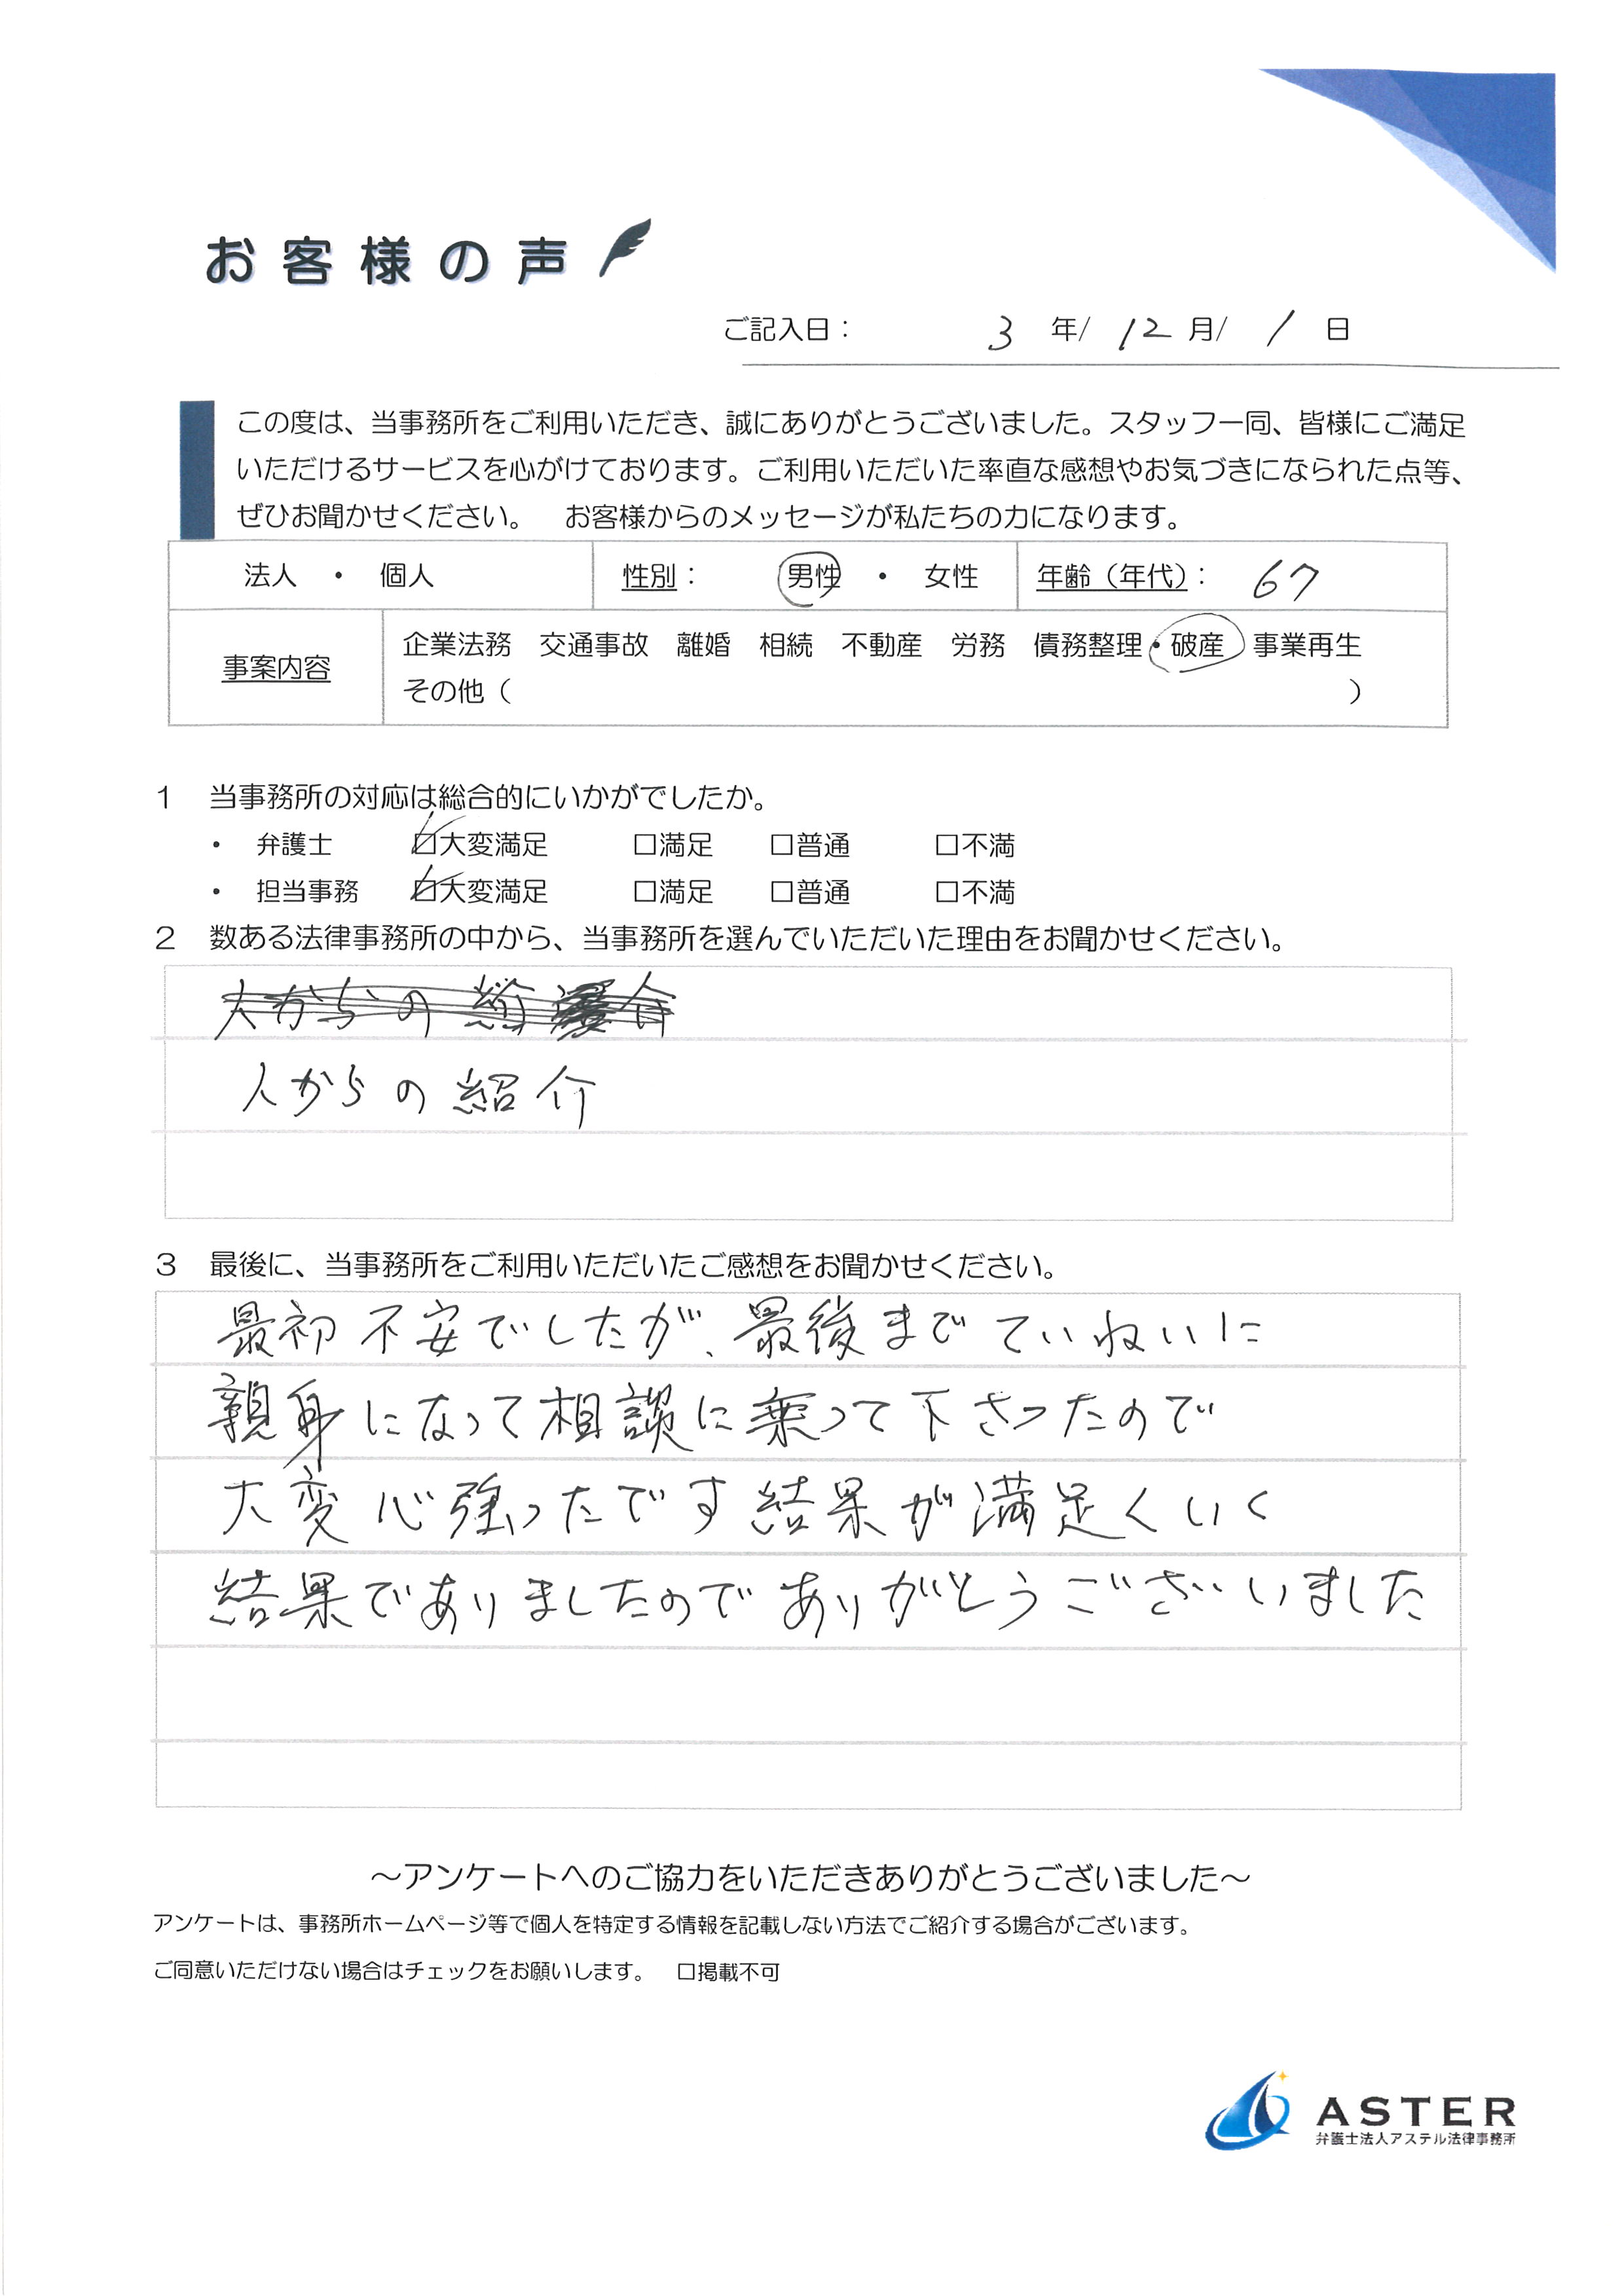 お客様の声
ご記入日： 3 年/ 12 月/ 1 日
この度は、当事務所をご利用いただき、誠にありがとうございました。スタッフ一同、皆様にご満足
いただけるサービスを心がけております。ご利用いただいた率直な感想やお気づきになられた点等、
ぜひお聞かせください。 お客様からのメッセージが私たちの力になります。
法人 ・ 個人 性別： 男性 ・ 女性 年齢（年代）： 67
事案内容 企業法務 交通事故 離婚 相続 不動産 労務 債務整理・破産 事業再生
その他（ ）
1 当事務所の対応は総合的にいかがでしたか。
・ 弁護士 ☑大変満足 □満足 □普通 □不満
・ 担当事務 ☑大変満足 □満足 □普通 □不満
2 数ある法律事務所の中から、当事務所を選んでいただいた理由をお聞かせください。
人からの
人からの紹介
3 最後に、当事務所をご利用いただいたご感想をお聞かせください。
最初不安でしたが、最後までていねいに
親身になって相談に乗って下さったので
大変心強ったです結果が満足くいく
結果でありましたのでありがとうございました
～アンケートへのご協力をいただきありがとうございました～
アンケートは、事務所ホームページ等で個人を特定する情報を記載しない方法でご紹介する場合がございます。
ご同意いただけない場合はチェックをお願いします。 □掲載不可
ASTER
弁護士法人アステル法律事務所